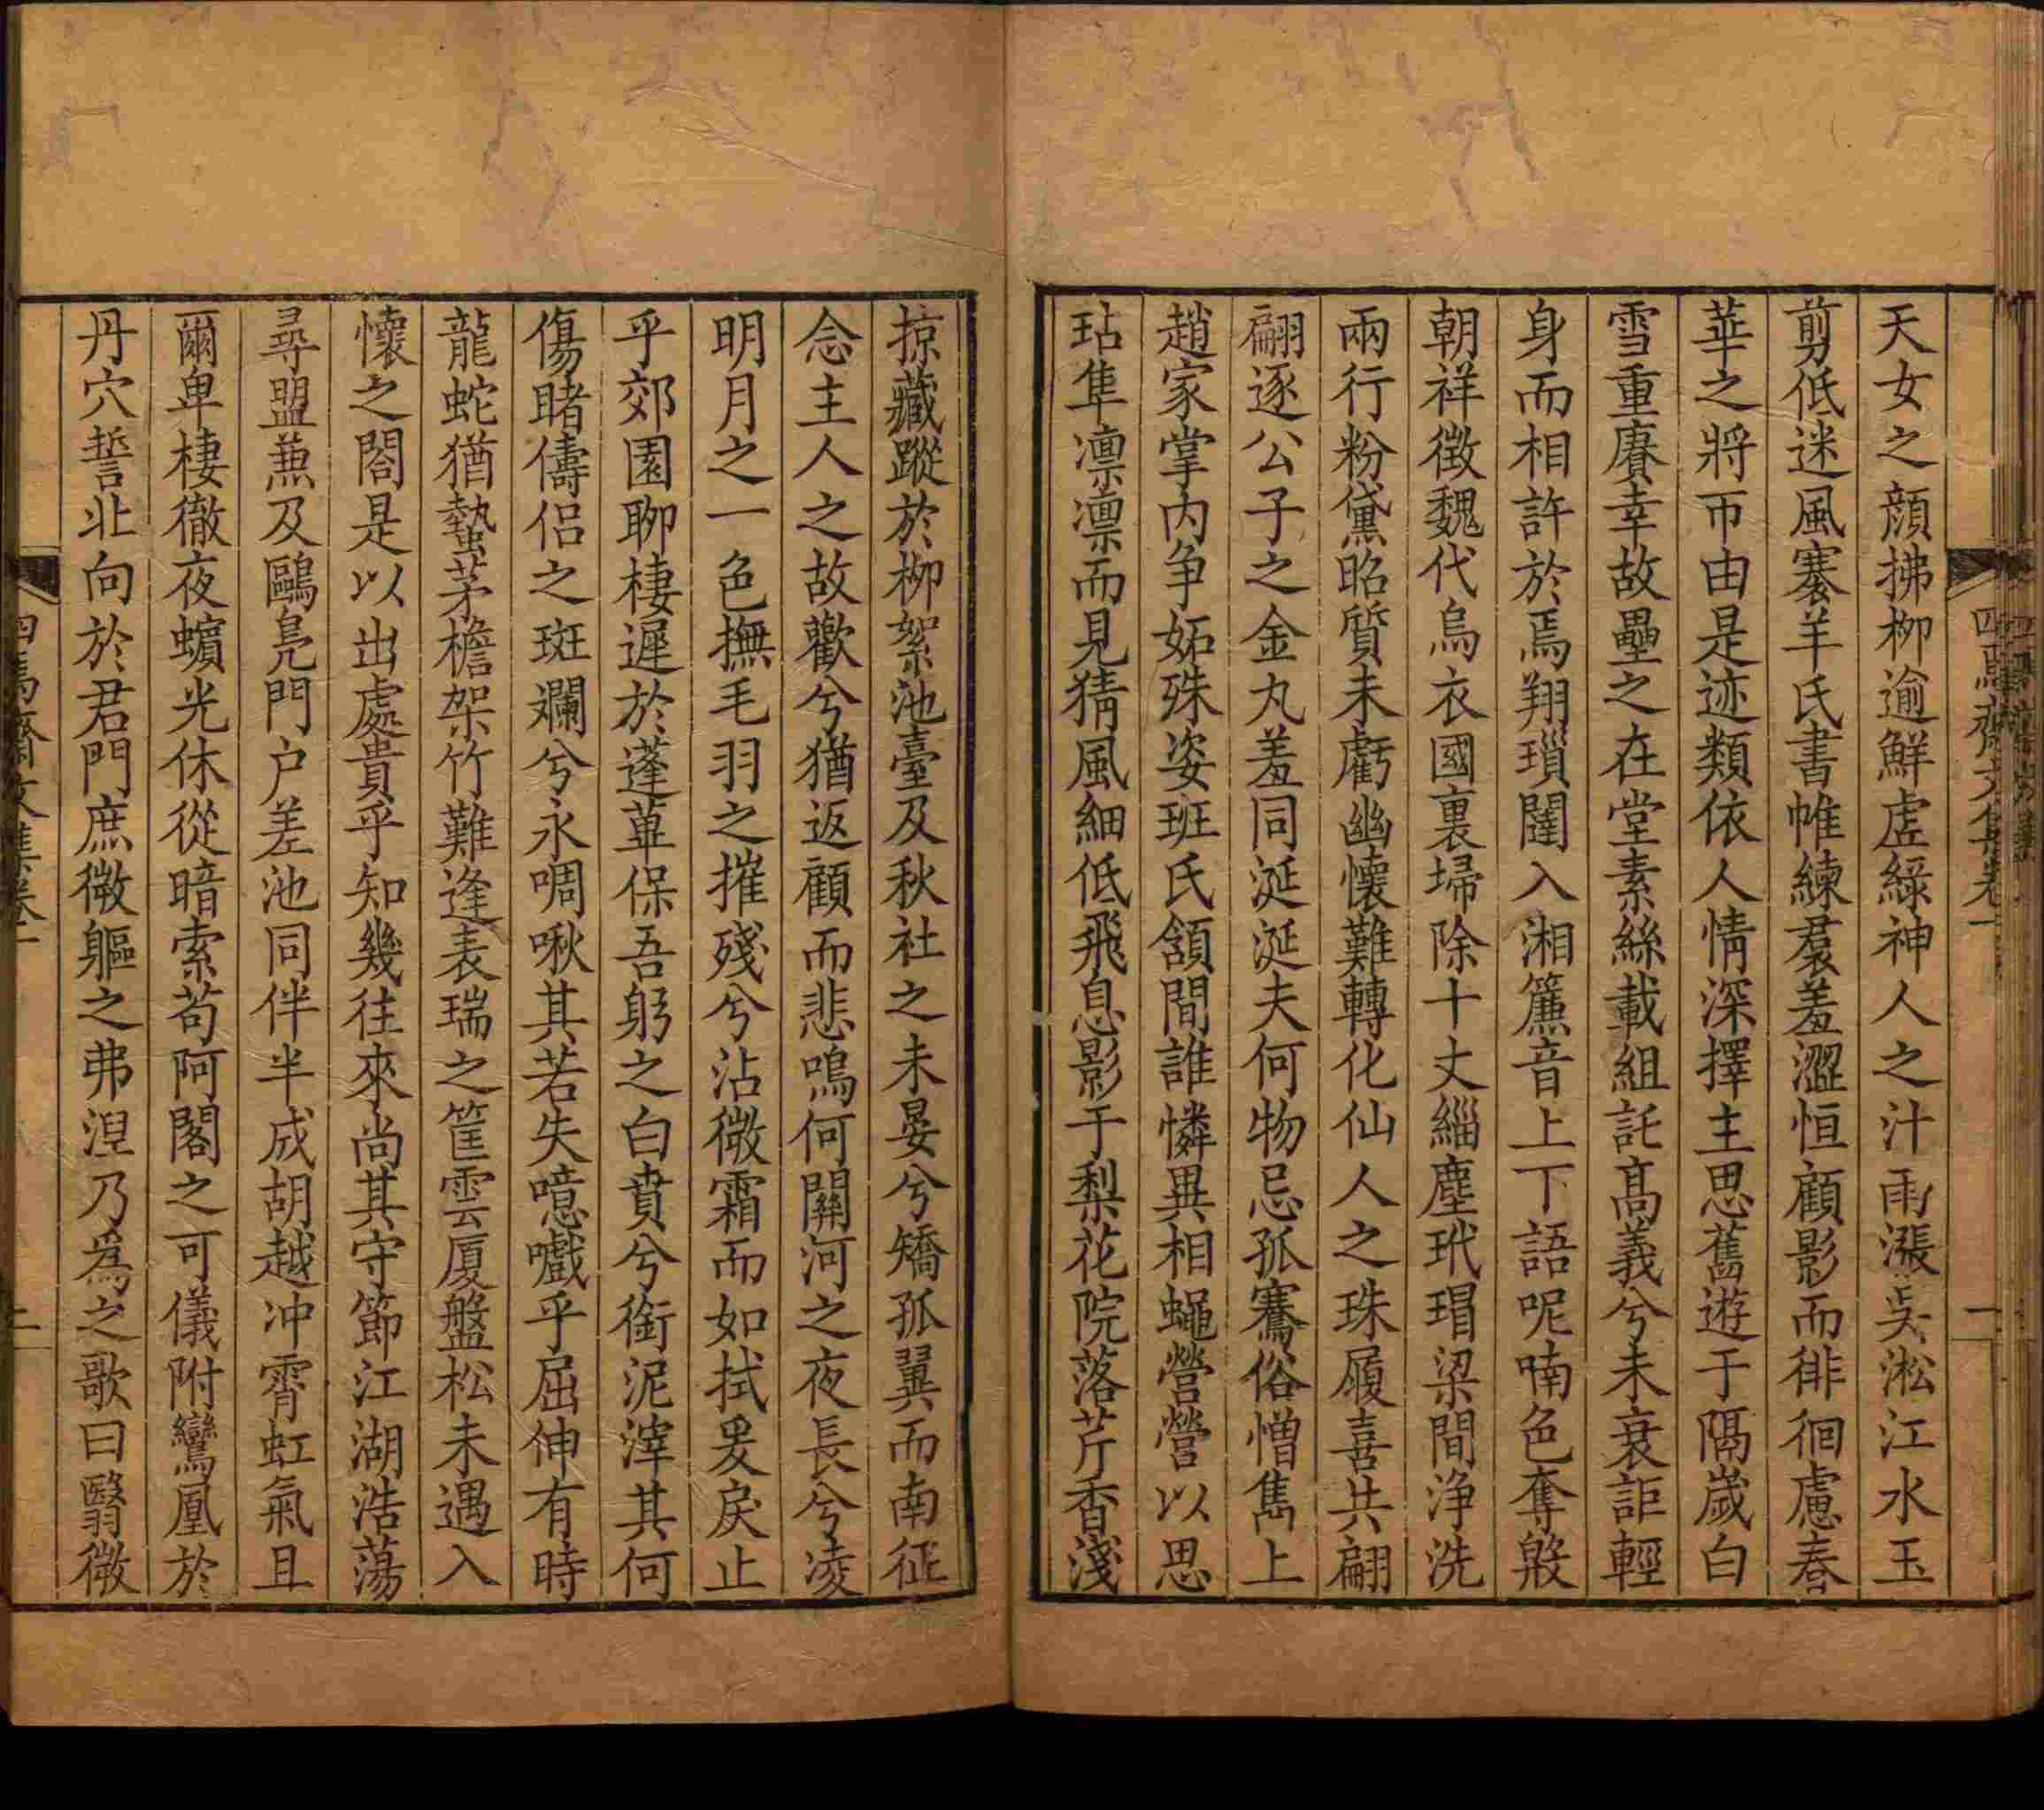 天女之顔拂柳逾鮮虗綠神人之汁雨漲吳淞江水玉
剪低迷風褰羊氏書帷練羣羞澀恒顧影而徘徊慮春
華之將帀由是迹類依人情深擇主思舊遊于隔歲白
雪重賡幸故壘之在堂素絲載組託高義兮未衰詎輕
身而相許於焉翔瑣闥入湘簾音上下語呢喃色奪殷
朝祥徵魏代烏衣國裏埽除十丈緇塵玳瑁梁間浄洗
兩行粉黛昭質未虧幽懷難轉化仙人之珠履喜共翩
翩逐公子之金丸羞同涎涎夫何物忌孤騫俗憎雋上
趙家掌内争妬殊姿班氏頷間誰憐異相蠅營營以思
玷隼凛凛而見猜風細低飛息影于梨花院落芹香淺
掠藏蹤於柳絮池臺及秋社之未晏兮矯孤翼而南征
念主人之故歡兮猶返顧而悲鳴何關河之夜長兮凌
明月之一色撫毛羽之摧殘兮沾微霜而如拭爰戾止
乎郊園聊棲遲於蓬蓽保吾躬之白賁兮銜泥滓其何
傷睹儔侣之斑斕兮永啁啾其若失噫嚱乎屈伸有時
龍蛇猶蟄茅檐架竹難逢表瑞之筐雲厦盤松未遇入
懷之閤是以出處貴乎知幾往來尚其守節江湖浩蕩
尋盟兼及鷗鳧門户差池同伴半成胡越冲霄虹氣且
爾卑棲徹夜蠙光休從暗索苟阿閣之可儀附鸞凰於
丹穴誓北向於君門庶微軀之弗湼乃為之歌曰翳微
四焉齋文集卷一
一
四焉齋文集卷一
二